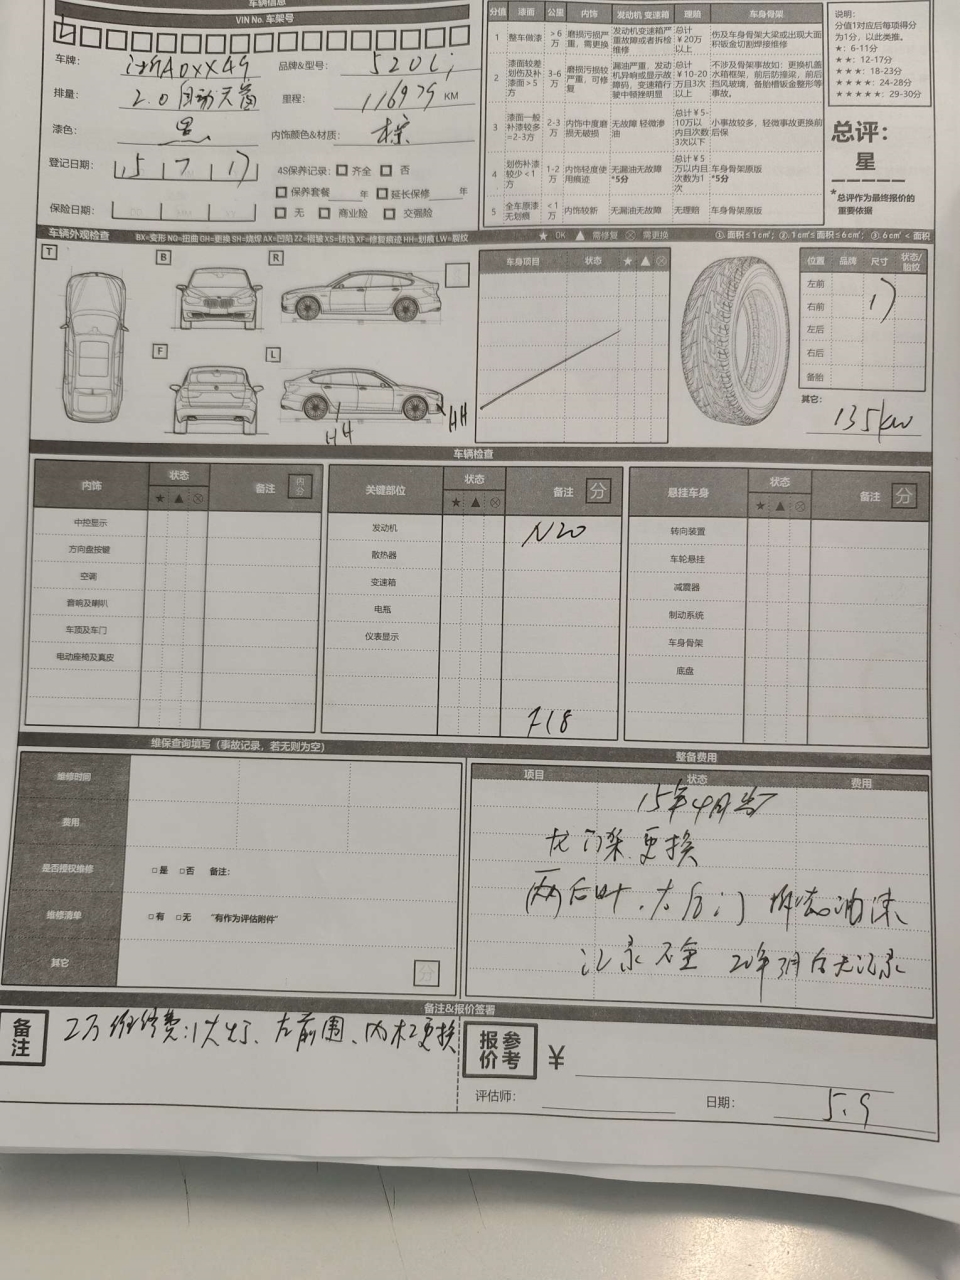 车辆信息
VIN No. 车架号
车牌: 浙A0XX49 品牌&型号: 520Li
排量: 2.0自动天窗 里程: 116979 KM
漆色: 黑 内饰颜色&材质: 棕
登记日期: 15 7 17 4S保养记录: 齐全 否
保养套餐 年 延长保修 年
保险日期: 无 商业险 交强险
分值 漆面 公里 内饰 发动机 变速箱 理赔 车身骨架
1 整车做漆 >6万 磨损污损严重,需更换 发动机变速箱严重故障或者拆检维修 总计¥20万以上 伤及车身骨架大梁或出现大面积钣金切割焊接维修
2 漆面较差划伤及补漆面>5方 3-6万 磨损污损较严重,可修复 漏油严重,发动机异响或显示故障码,变速箱行驶中顿挫明显 总计¥10-20万且3次以上 不涉及骨架事故如:更换机盖水箱框架,前后防撞梁,前后挡风玻璃,备胎槽钣金整形等事故。
3 漆面一般补漆较多=2-3方 2-3万 内饰中度磨损无破损 无故障 轻微渗油 总计¥5-10万以内且次数3次以下 小事故较多,轻微事故更换前后保
4 划伤补漆较少<1方 1-2万 内饰轻度使用痕迹 无漏油无故障*5分 总计¥5万以内且次数为1次 车身骨架原版*5分
5 全车原漆无划痕 <1万 内饰较新 无漏油无故障 无理赔 车身骨架原版
说明:
分值1对应后每项得分为1分,以此类推。
★: 6-11分
★★: 12-17分
★★★: 18-23分
★★★★: 24-28分
★★★★★: 29-30分
总评:
星
*总评作为最终报价的重要依据
车辆外观检查 BX=变形 NQ=扭曲 GH=更换 SH=烧焊 AX=凹陷 ZZ=褶皱 XS=锈蚀 XF=修复痕迹 HH=划痕 LW=裂纹 ★ OK ▲ 需修复 ⊗ 需更换 ①.面积≤1c㎡; ②.1c㎡≤面积≤6c㎡; ③.6c㎡<面积
T B R
F L
HH HH
车身项目 状态 ★ ▲ ⊗
位置 品牌 尺寸 状态/胎纹
左前
右前 17
左后
右后
备胎
其它: 135kw
车辆检查
内饰 状态 ★ ▲ ⊗ 备注 内分
中控显示
方向盘按键
空调
音响及喇叭
车顶及车门
电动座椅及真皮
关键部位 状态 ★ ▲ ⊗ 备注 分
发动机 N20
散热器
变速箱
电瓶
仪表显示
F18
悬挂车身 状态 ★ ▲ ⊗ 备注 分
转向装置
车轮悬挂
减震器
制动系统
车身骨架
底盘
维保查询填写(事故记录,若无则为空)
维修时间
费用
是否授权维修 □是 □否 备注:
维修清单 □有 □无 "有作为评估附件"
其它 分
整备费用
项目 状态 费用
15年4月出厂
龙门架更换
两后叶、左后门 拆装油漆
记录不全 20年3月后无记录
备注&报价签署
备注 2万维修费:1大灯、左前围、内杠更换
报价参考 ¥
评估师: 日期: 5.9